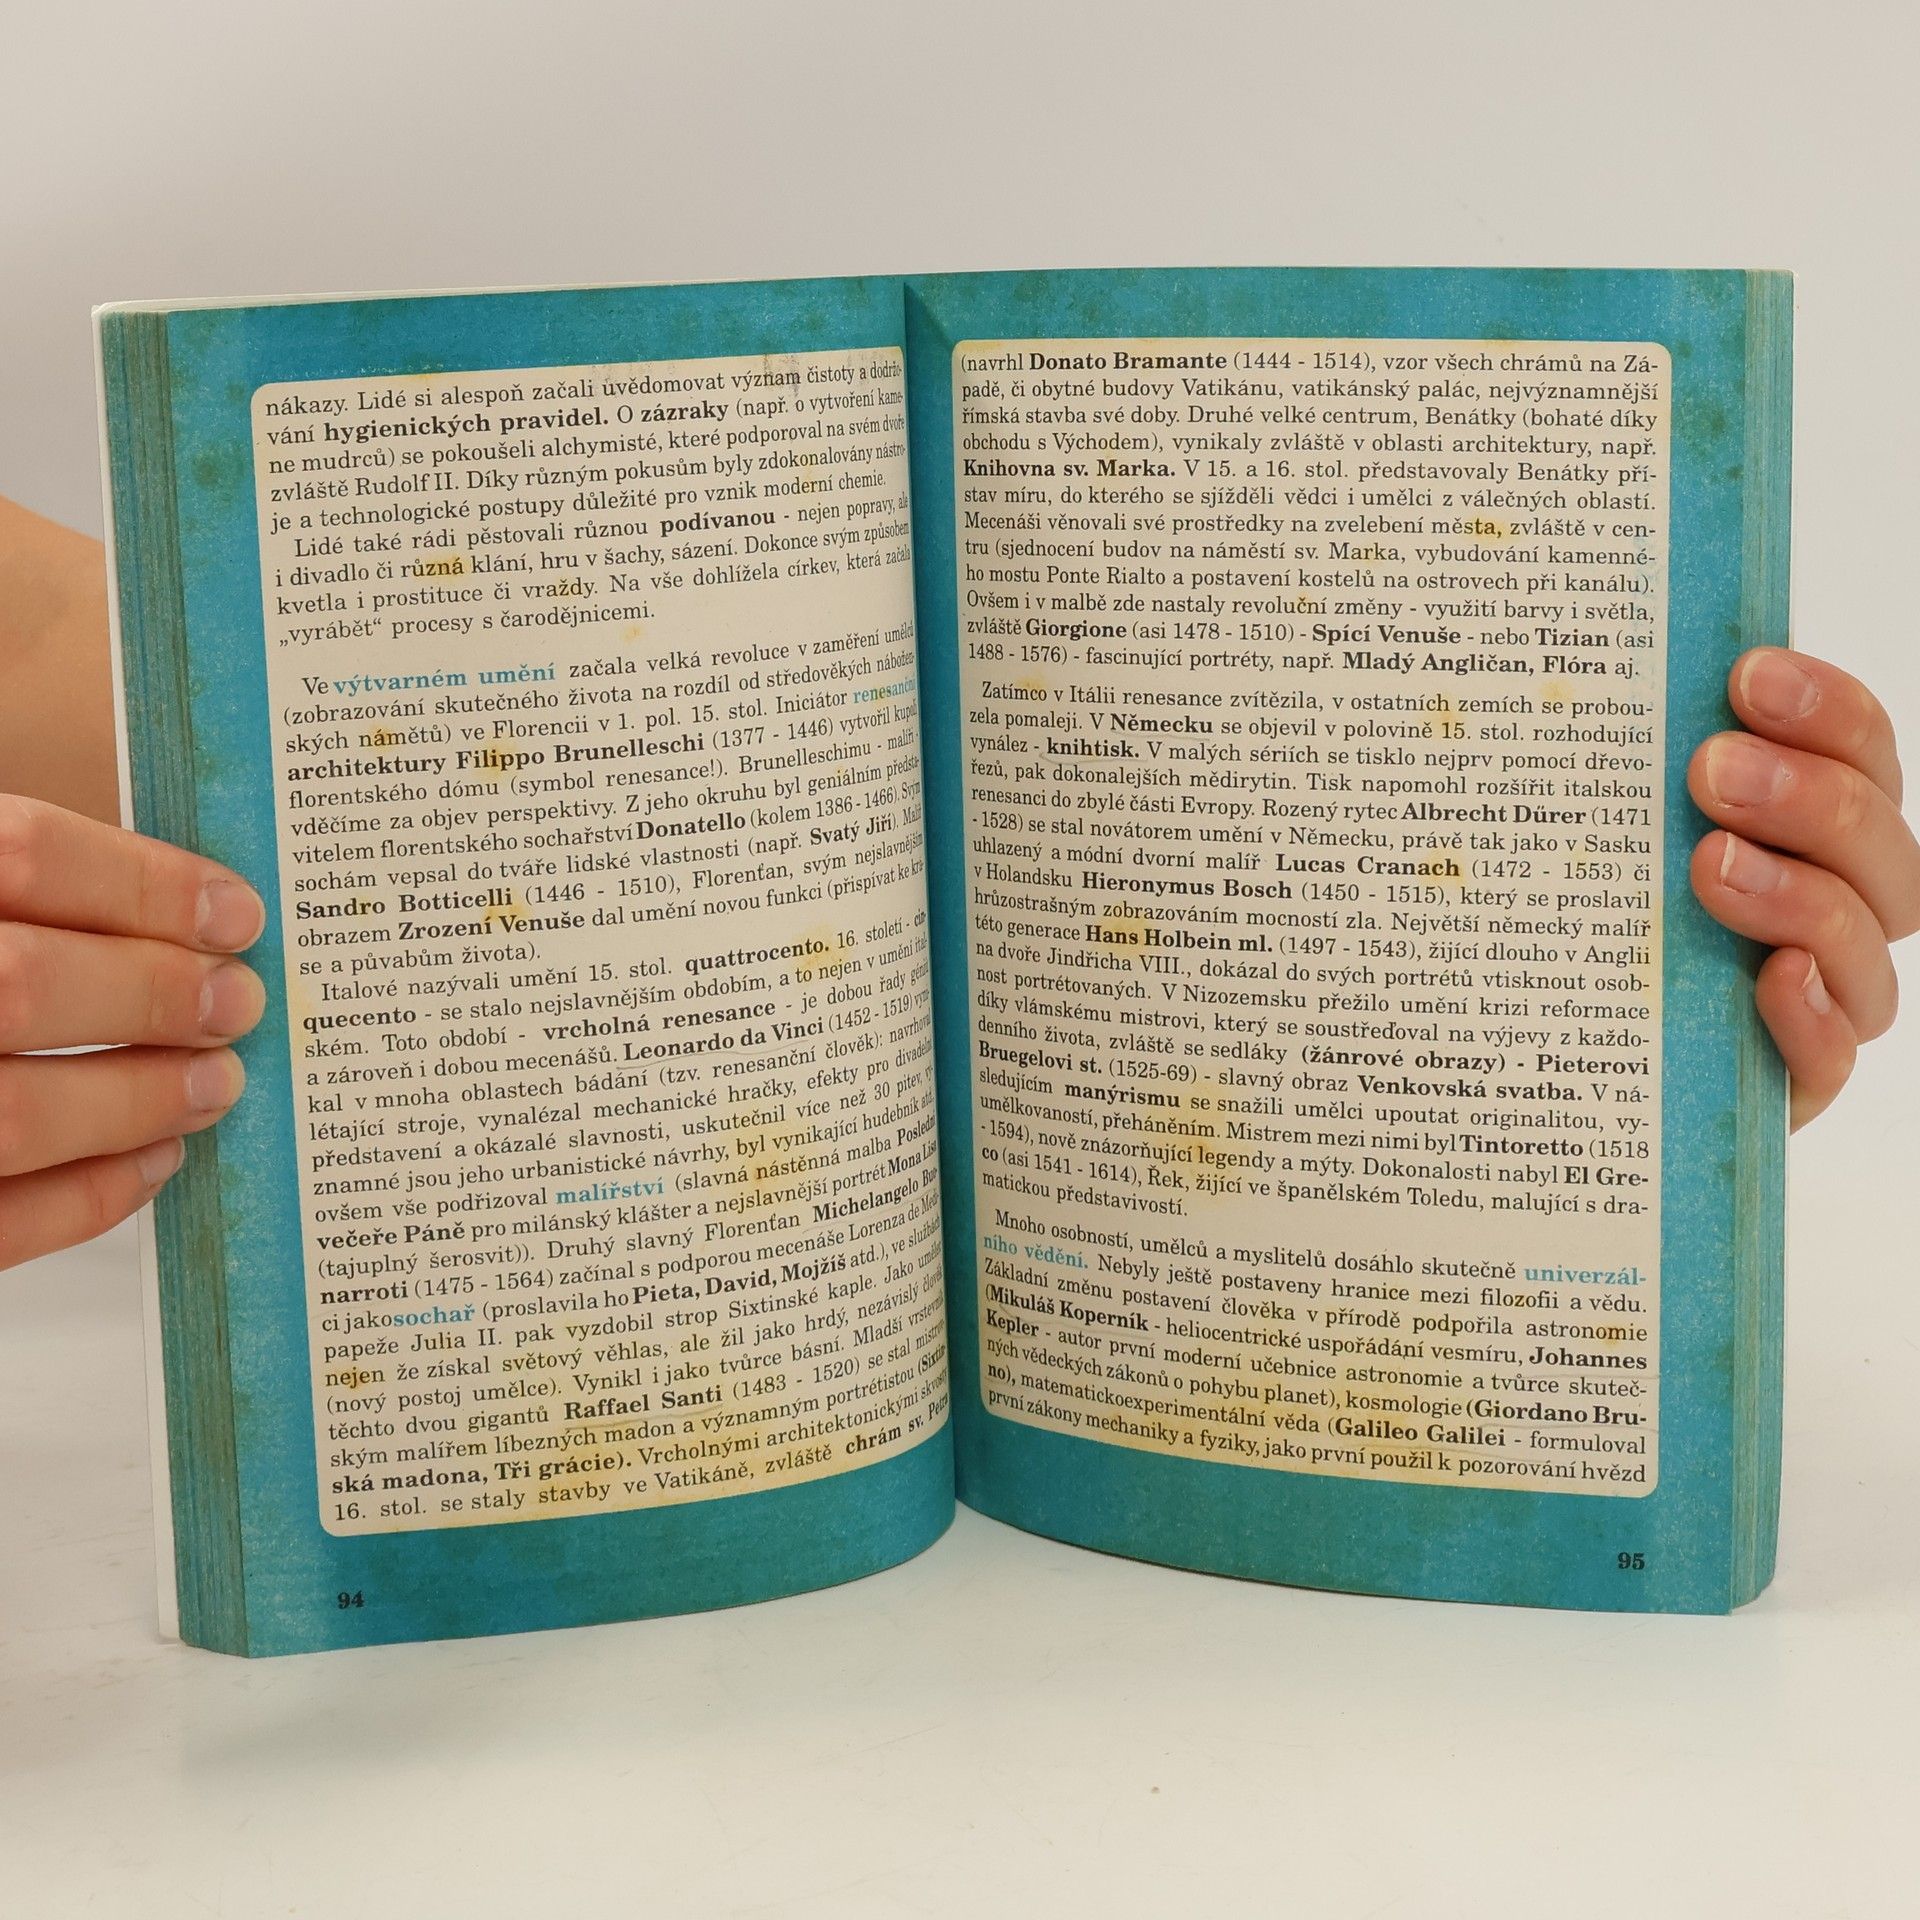 nákazy. Lidé si alespoň začali uvědomovat význam čistoty a dodržo-
vání hygienických pravidel. O zázraky (např. o vytvoření kame-
ne mudrců) se pokoušeli alchymisté, které podporoval na svém dvoře
zvláště Rudolf II. Díky různým pokusům byly zdokonalovány nástro-
je a technologické postupy důležité pro vznik moderní chemie.
Lidé také rádi pěstovali různou podívanou - nejen popravy, ale
i divadlo či různá klání, hru v šachy, sázení. Dokonce svým způsobem
kvetla i prostituce či vraždy. Na vše dohlížela církev, která začala
„vyrábět“ procesy s čarodějnicemi.
Ve výtvarném umění začala velká revoluce v zaměření umělců
(zobrazování skutečného života na rozdíl od středověkých nábožen-
ských námětů) ve Florencii v 1. pol. 15. stol. Iniciátor renesanční
architektury Filippo Brunelleschi (1377 - 1446) vytvořil kupoli
florentského dómu (symbol renesance!). Brunelleschimu - malíři -
vděčíme za objev perspektivy. Z jeho okruhu byl geniálním představ-
vitelem florentského sochařství Donatello (kolem 1386 - 1466). Svým
sochám vepsal do tváře lidské vlastnosti (např. Svatý Jiří). Malíř
Sandro Botticelli (1446 - 1510), Florenťan, svým nejslavnějším
obrazem Zrození Venuše dal umění novou funkci (přispívat ke krá-
se a půvabům života).
Italové nazývali umění 15. stol. quattrocento. 16. století - cin-
quecento - se stalo nejslavnějším obdobím, a to nejen v umění ital-
ském. Toto období - vrcholná renesance - je dobou řady géniů
a zároveň i dobou mecenášů. Leonardo da Vinci (1452 - 1519) vyni-
kal v mnoha oblastech bádání (tzv. renesanční člověk): navrhoval
létající stroje, vynalézal mechanické hračky, efekty pro divadelní
představení a okázalé slavnosti, uskutečnil více než 30 pitev, vý-
znamné jsou jeho urbanistické návrhy, byl vynikající hudebník atd.,
ovšem vše podřizoval malířství (slavná nástěnná malba Poslední
večeře Páně pro milánský klášter a nejslavnější portrét Mona Lisa
(tajuplný šerosvit)). Druhý slavný Florenťan Michelangelo Buo-
narroti (1475 - 1564) začínal s podporou mecenáše Lorenza de Medi-
ci jako sochař (proslavila ho Pieta, David, Mojžíš atd.), ve službách
papeže Julia II. pak vyzdobil strop Sixtinské kaple. Jako umělec
nejen že získal světový věhlas, ale žil jako hrdý, nezávislý člověk
(nový postoj umělce). Vynikl i jako tvůrce básní. Mladší vrstevník
těchto dvou gigantů Raffael Santi (1483 - 1520) se stal mistrov-
ským malířem líbezných madon a významným portrétistou (Sixtin-
ská madona, Tři grácie). Vrcholnými architektonickými skvosty
16. stol. se staly stavby ve Vatikáně, zvláště chrám sv. Petra
94
(navrhl Donato Bramante (1444 - 1514), vzor všech chrámů na Zá-
padě, či obytné budovy Vatikánu, vatikánský palác, nejvýznamnější
římská stavba své doby. Druhé velké centrum, Benátky (bohaté díky
obchodu s Východem), vynikaly zvláště v oblasti architektury, např.
Knihovna sv. Marka. V 15. a 16. stol. představovaly Benátky pří-
stav míru, do kterého se sjížděli vědci i umělci z válečných oblastí.
Mecenáši věnovali své prostředky na zvelebení města, zvláště v cen-
tru (sjednocení budov na náměstí sv. Marka, vybudování kamenné-
ho mostu Ponte Rialto a postavení kostelů na ostrovech při kanálu).
Ovšem i v malbě zde nastaly revoluční změny - využití barvy i světla,
zvláště Giorgione (asi 1478 - 1510) - Spící Venuše - nebo Tizian (asi
1488 - 1576) - fascinující portréty, např. Mladý Angličan, Flóra aj.
Zatímco v Itálii renesance zvítězila, v ostatních zemích se probou-
zela pomaleji. V Německu se objevil v polovině 15. stol. rozhodující
vynález - knihtisk. V malých sériích se tisklo nejprv pomocí dřevo-
řezů, pak dokonalejších mědirytin. Tisk napomohl rozšířit italskou
renesanci do zbylé části Evropy. Rozený rytec Albrecht Dürer (1471
- 1528) se stal novátorem umění v Německu, právě tak jako v Sasku
uhlazený a módní dvorní malíř Lucas Cranach (1472 - 1553) či
v Holandsku Hieronymus Bosch (1450 - 1515), který se proslavil
hrůzostrašným zobrazováním mocností zla. Největší německý malíř
této generace Hans Holbein ml. (1497 - 1543), žijící dlouho v Anglii
na dvoře Jindřicha VIII., dokázal do svých portrétů vtisknout osob-
nost portrétovaných. V Nizozemsku přežilo umění krizi reformace
díky vlámskému mistrovi, který se soustřeďoval na výjevy z každo-
denního života, zvláště se sedláky (žánrové obrazy) - Pieterovi
Bruegelovi st. (1525-69) - slavný obraz Venkovská svatba. V ná-
sledujícím manýrismu se snažili umělci upoutat originalitou, vy-
umělkovaností, přeháněním. Mistrem mezi nimi byl Tintoretto (1518
- 1594), nově znázorňující legendy a mýty. Dokonalosti nabyl El Gre-
co (asi 1541 - 1614), Řek, žijící ve španělském Toledu, malující s dra-
matickou představivostí.
Mnoho osobností, umělců a myslitelů dosáhlo skutečně univerzál-
ního vědění. Nebyly ještě postaveny hranice mezi filozofií a vědu.
Základní změnu postavení člověka v přírodě podpořila astronomie
(Mikuláš Koperník - heliocentrické uspořádání vesmíru, Johannes
Kepler - autor první moderní učebnice astronomie a tvůrce skuteč-
ných vědeckých zákonů o pohybu planet), kosmologie (Giordano Bru-
no), matematickoexperimentální věda (Galileo Galilei - formuloval
první zákony mechaniky a fyziky, jako první použil k pozorování hvězd
95